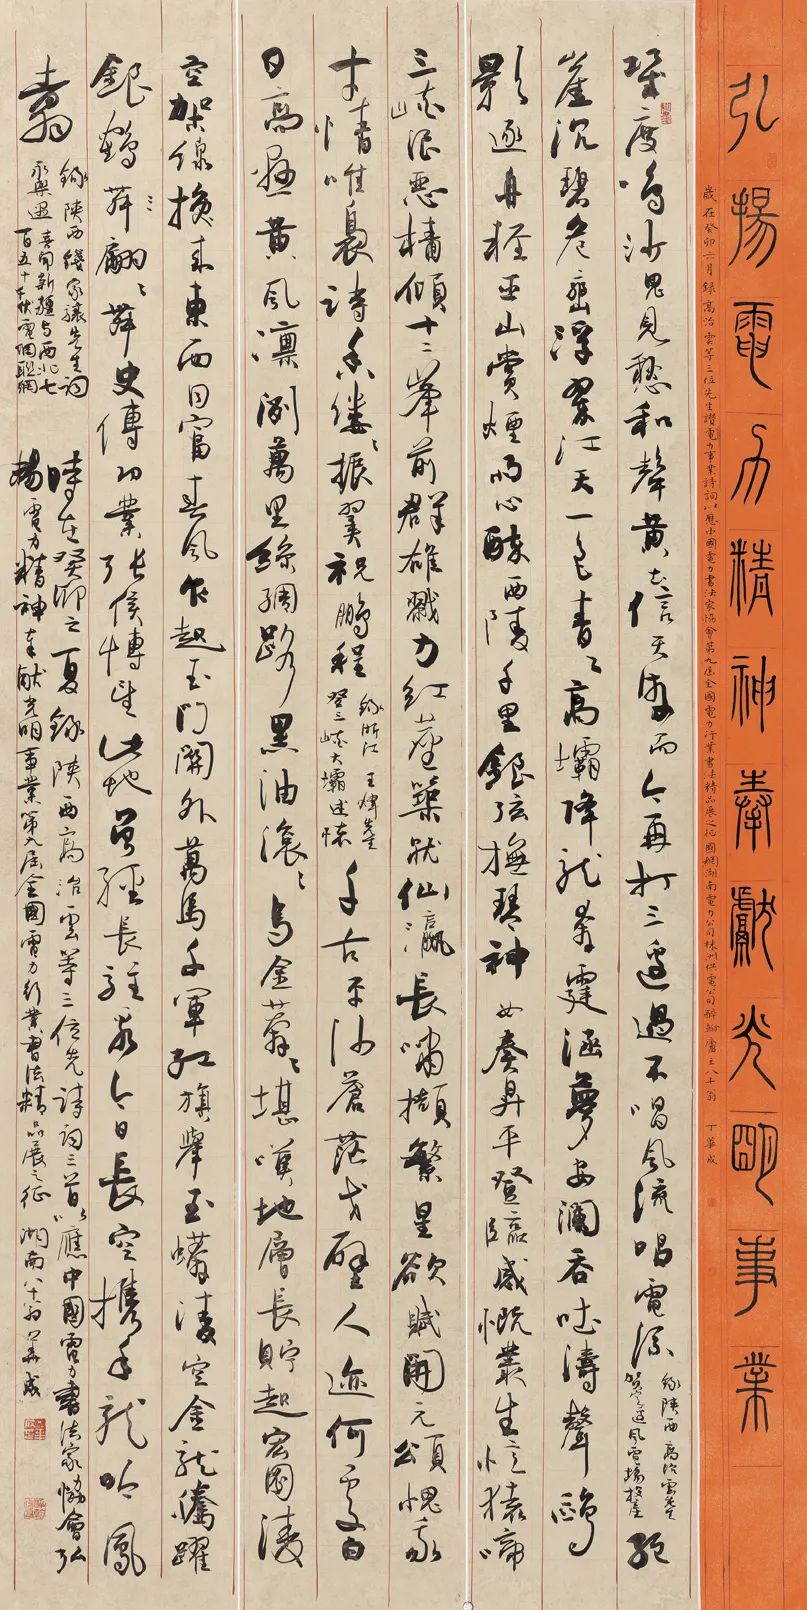 弘揚電力精神奉獻光明事業
歲在癸卯六月錄高治雲等三位先生讚電力事業詩詞以應中國電力書法家協會第九屆全國電力行業書法精品展之征國網湖南電力公司株洲供電公司醉翰廬主八十翁 丁華成
度鳴沙鬼見愁和聲黃去信天游而今再打三邊過不唱風流唱電流
錄陝西高治雲先生
賀定邊風電場投產
絕
崖沉碧危巒浮翠江天一色青青高壩降龍眷霆涵夢安瀾吞吐濤聲鷗
影逐舟輕巫山賞煙雨心醉西陵千里銀弦撫琴神女奏昇平登臨感慨叢生憶猿啼
三峽浪惡檣傾十二峯前群雄戮力紅薩築就仙瀛長嘯擷繁星欲賦開元頌愧我
才情唯裊詩香縷縷振翼祝鵬程
錄浙江 王煒先生
登三峽大壩述懷
千古平沙蒼茫戈壁人迹何處白
日高懸黃風凜冽萬里絲綢路黑油滾滾烏金蕴蕴堪嘆地層長貯起宏圖凌
空架線換來東西同富春風乍起玉門關外萬馬千軍紅旗舉玉蟒凌空金龍騰躍
銀鶴舞翩翩舞史傳功業張侯博望此地曾經長駐最今日長空携手龍吟鳳
翥
錄陝西 家驤先生詞
永遇 喜聞新疆與西北七
百五十千伏電網聯網
時在癸卯之夏錄陝西高治雲等三位先詩詞三首以應中國電力書法家協會弘
揚電力精神奉獻光明事業第九屆全國電力行業書法精品展之征 湖南八十翁 華成